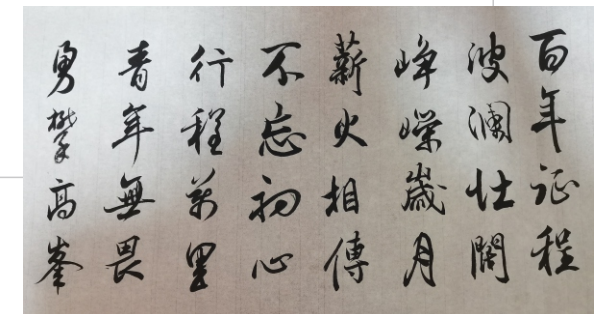 百年征程
波瀾壮闊
峥嶸歲月
薪火相傳
不忘初心
行程萬里
青年無畏
勇攀高峯